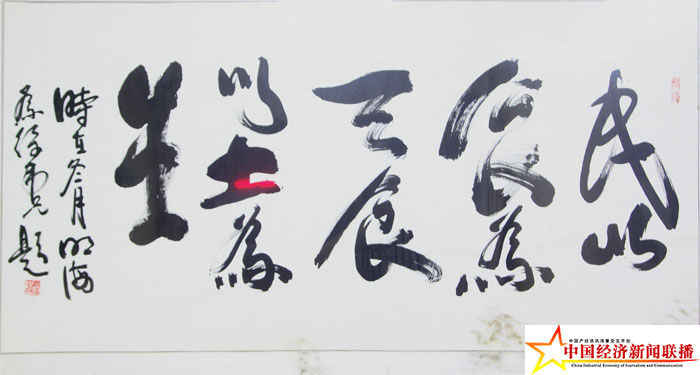 民以
食為
天食
以土為
生
時在冬月明海
題
中国产经资讯流量交互平台
中国经济新闻联播
China Industrial Economy of Journalism and Communication